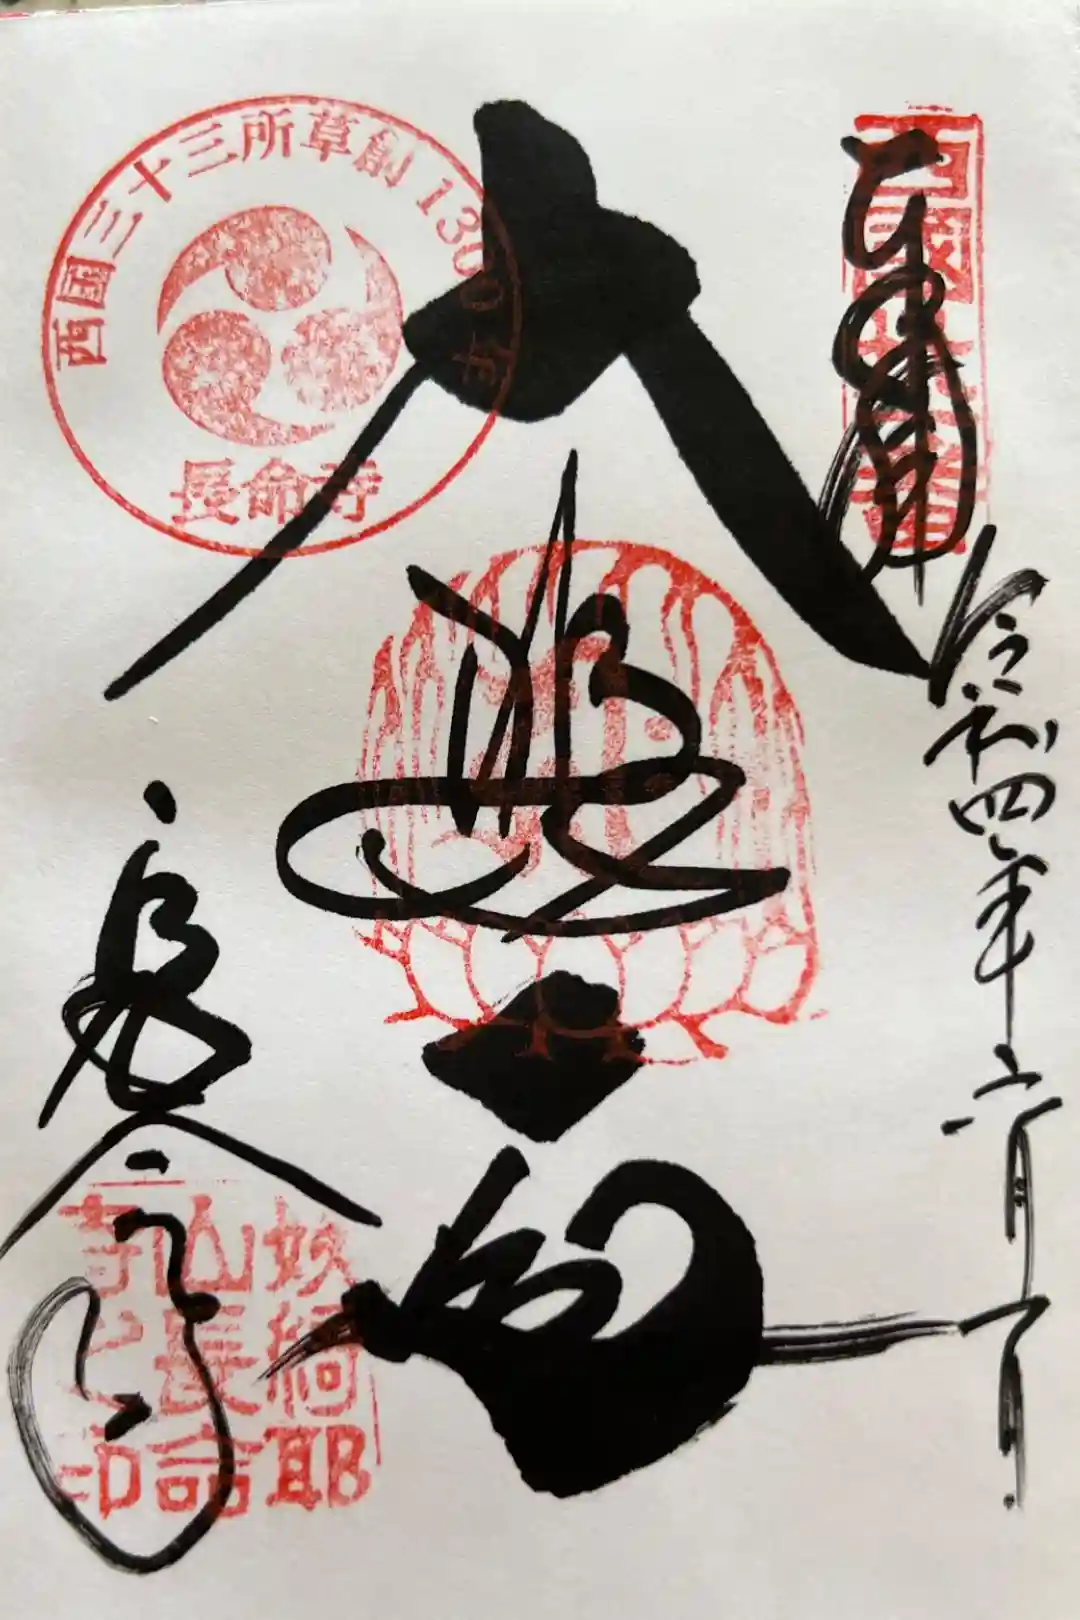 奉拝
西國三十一番
令和四年六月
大悲殿
西国三十三所草創1300年
長命寺
長命寺
姨綺耶山長命寺之印